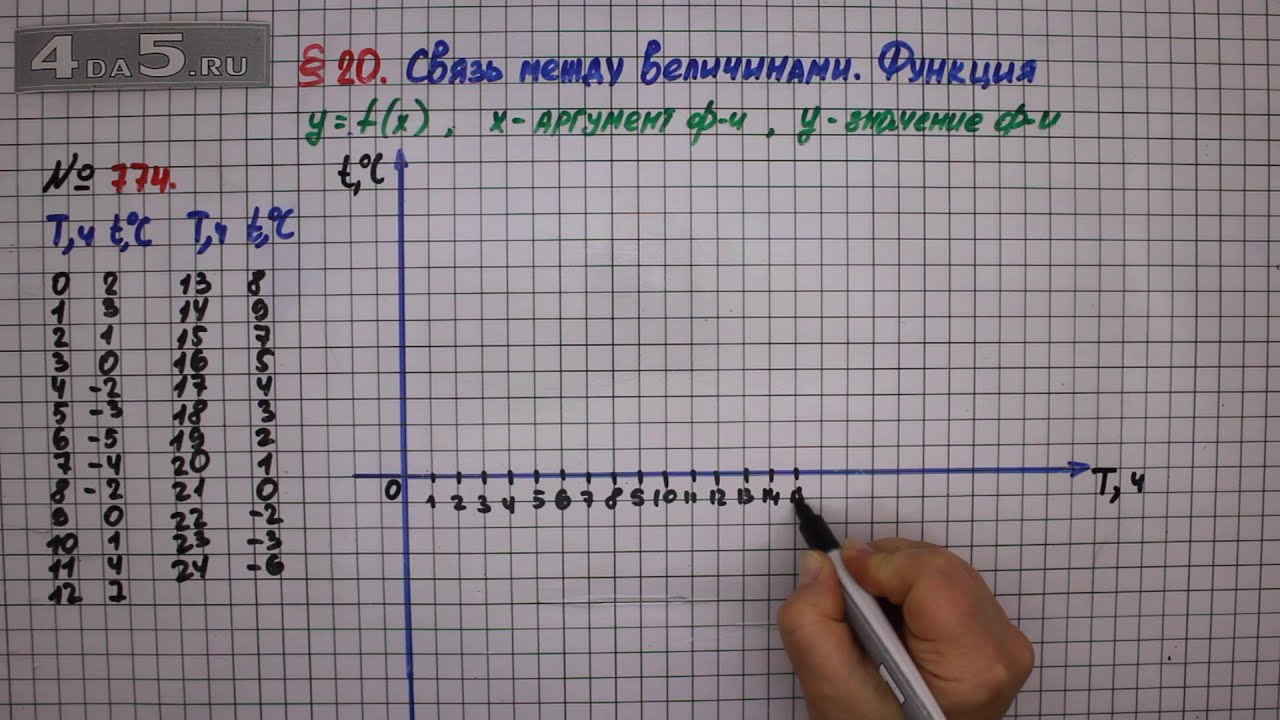 4DA5.RU
§ 20. Связь между величинами. Функция
y = f(x), x - аргумент ф-и, y - значение ф-и
№ 774.
T, ч t,°C T, ч t,°C
0 2 13 8
1 3 14 9
2 1 15 7
3 0 16 5
4 -2 17 4
5 -3 18 3
6 -5 19 2
7 -4 20 1
8 -2 21 0
9 0 22 -2
10 1 23 -3
11 4 24 -6
12 7
t,°C
0 1 2 3 4 5 6 7 8 9 10 11 12 13 14
T, ч